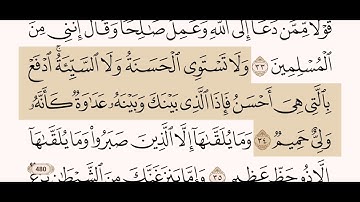 قَوْلًا مِّمَّن دَعَا إِلَى اللَّهِ وَعَمِلَ صَالِحًا وَقَالَ إِنَّنِي مِنَ
الْمُسْلِمِينَ ٣٣ وَلَا تَسْتَوِي الْحَسَنَةُ وَلَا السَّيِّئَةُ ۚ ادْفَعْ
بِالَّتِي هِيَ أَحْسَنُ فَإِذَا الَّذِي بَيْنَكَ وَبَيْنَهُ عَدَاوَةٌ كَأَنَّهُ
وَلِيٌّ حَمِيمٌ ٣٤ وَمَا يُلَقَّاهَا إِلَّا الَّذِينَ صَبَرُوا وَمَا يُلَقَّاهَا
إِلَّا ذُو حَظٍّ عَظِيمٍ ٣٥ وَإِمَّا يَنزَغَنَّكَ مِنَ الشَّيْطَانِ نَزْغٌ
480